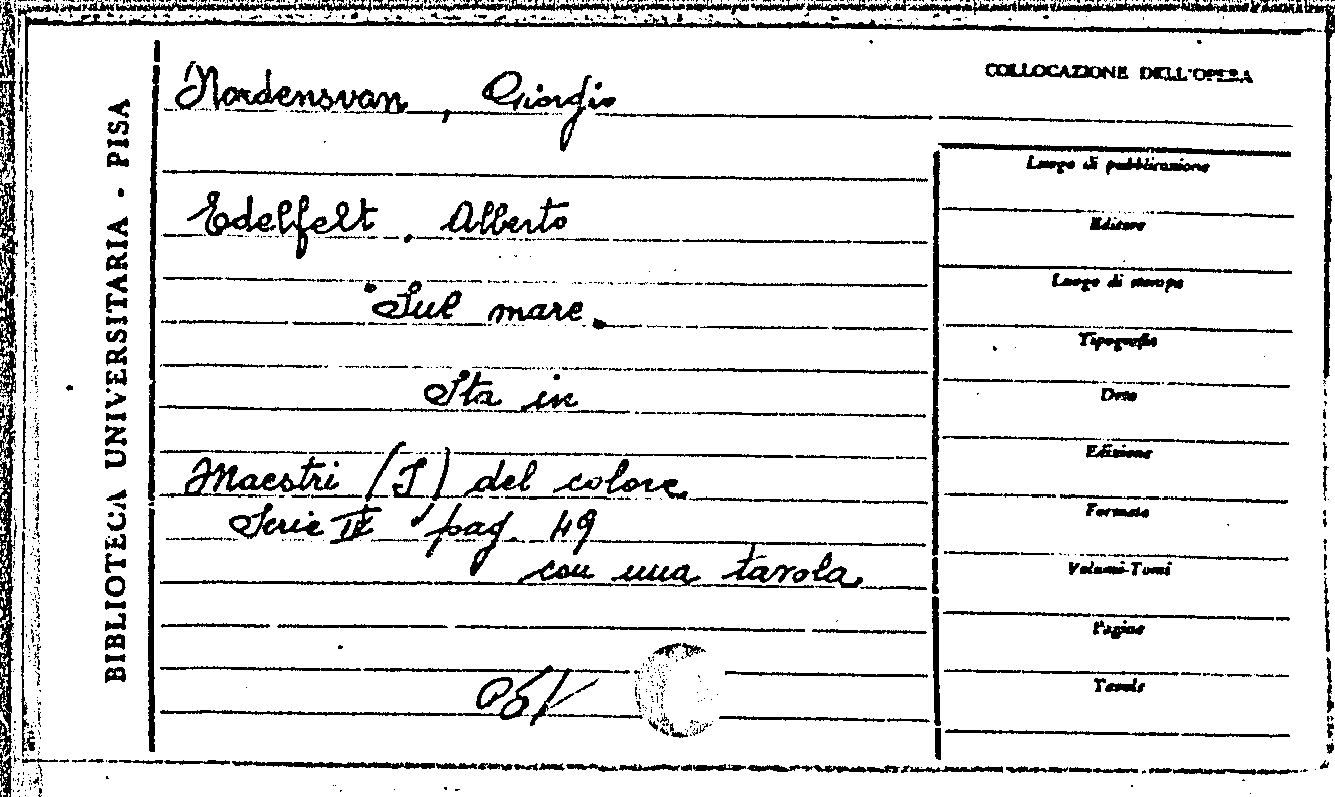 BIBLIOTECA UNIVERSITARIA - PISA
Nordensvan, Giorgio
Edelfelt, Alberto
"Sul mare.
Sta in
Maestri (I) del colore.
Serie IV pag. 49
con una tavola
COLLOCAZIONE DELL'OPERA
Luogo di pubblicazione
Editore
Luogo di stampa
Tipografia
Data
Edizione
Formato
Volumi-Tomi
Pagine
Tavole